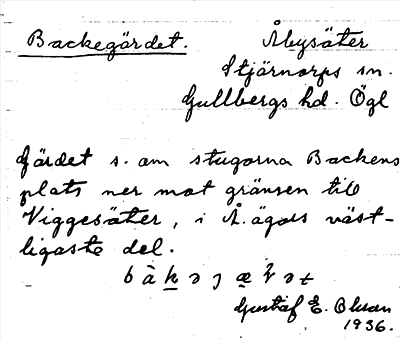 Backegärdet. Åbysäter
Stjärnorps sn.
Gullbergs hd. Ögl
Gärdet s. om stugorna Backens
plats ner mot gränsen till
Viggesäter, i Å. ägors väst-
ligaste del.
Gustaf E. Olsson
1936.